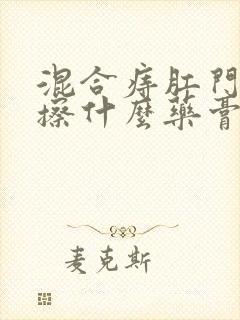 混合痔肛門
擦什麼藥膏
麦克斯